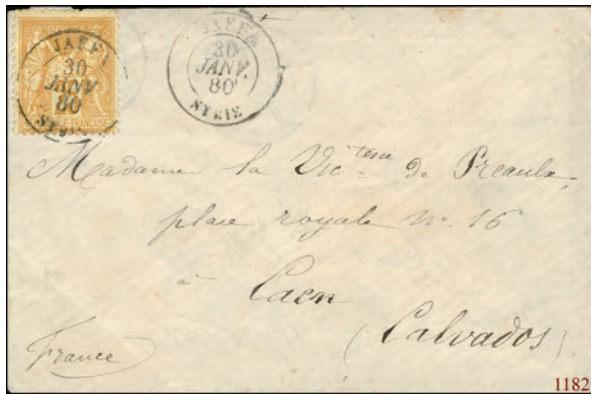 JAFFA
30
JANV.
80
SYRIE
JAFFA
30
JANV.
80
SYRIE
QUE FRANÇAISE
Madame la Vic=tesse de Preaulx,
place royale no. 16
à
Caen
(Calvados)
France
1182